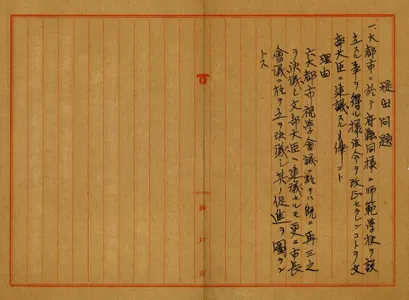 提出問題
一、大都市ニ於テ府縣同様ニ師範學校ヲ設
立スル事ヲ得ル様法令ヲ改正セラレンコトヲ文
部大臣ニ建議スルノ件
理由
六大都市視學會議ニ於テハ既ニ再三之
ヲ決議シ文部大臣ヘ建議セルモ更ニ市長
會議ニ於テ之ヲ決議シ其ノ促進ヲ圖ラン
トス
神戸市